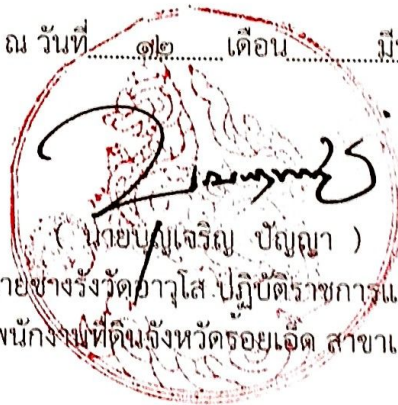 ณ วันที่ ๑๒ เดือน
( นายบุญเจริญ ปัญญา )
ายช่างรังวัดอาวุโส ปฏิบัติราชการแ
พนักงานที่ดินจังหวัดร้อยเอ็ด สาขาเ